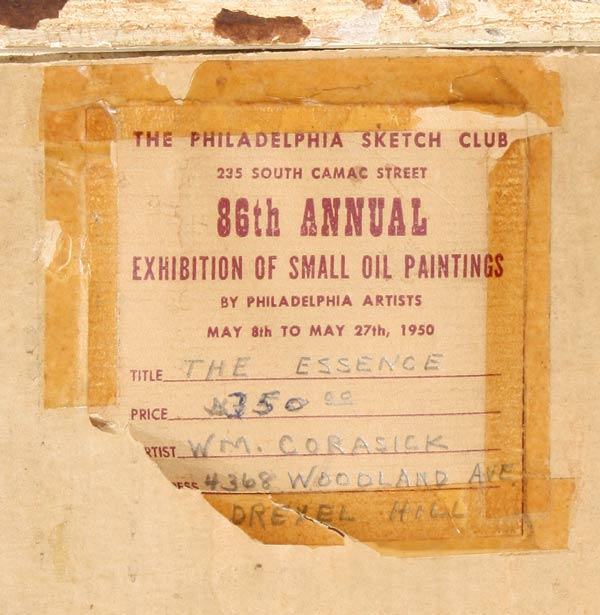 THE PHILADELPHIA SKETCH CLUB
235 SOUTH CAMAC STREET
86th ANNUAL
EXHIBITION OF SMALL OIL PAINTINGS
BY PHILADELPHIA ARTISTS
MAY 8th TO MAY 27th, 1950
TITLE THE ESSENCE
PRICE $350 00
RTIST WM. CORASICK
ESS 4368 WOODLAND AVE
DREXEL HILL